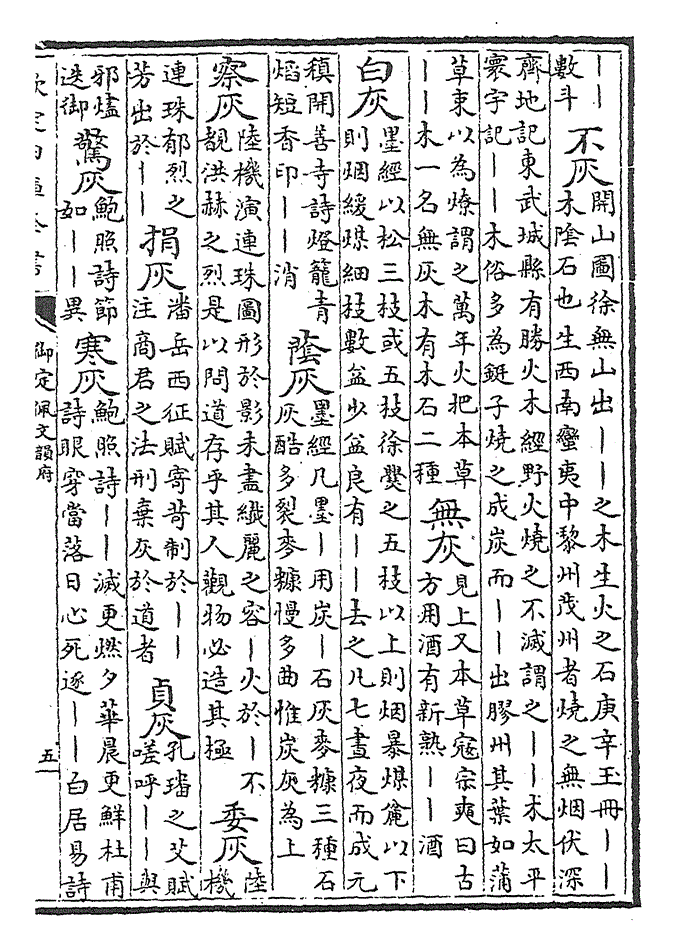 ——數斗 不灰 開山圖徐無山出——之木生火之石庚辛玉冊——木隂石也生西南蠻夷中黎州茂州者燒之無烟伏深
齊地記東武城縣有勝火木經野火燒之不滅謂之——木太平寰宇記——木俗多為鋌子燒之成炭而——出膠州其葉如蒲
草束以為燎謂之萬年火把本草——木一名無灰木有木石二種 無灰 見上又本草寇宗奭曰古方用酒有新熟——酒
白灰 墨經以松三枝或五枝徐㸑之五枝以上則烟暴煤麄以下則烟緩煤細枝數益少益良有——去之凡七晝夜而成元
稹開善寺詩燈籠青熖短香印——消 蔭灰 墨經凡墨—用炭—石灰麥糠三種石灰酷多裂麥糠慢多曲惟炭灰為上
察灰 陸機演連珠圖形於影未盡纎麗之容—火於—不覩洪赫之烈是以問道存乎其人觀物必造其極 委灰 陸機
連珠郁烈之芳出於—— 捐灰 潘岳西征賦寄苛制於——注商君之法刑棄灰於道者 貞灰 孔璠之艾賦嗟呼——與
邪爐迭御 驚灰 鮑照詩節如——異 寒灰 鮑照詩——滅更燃夕華晨更鮮杜甫詩眼穿當落日心死逐——白居易詩
欽定四庫全書 御定佩文韻府 五